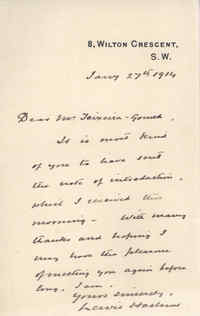 8, WILTON CRESCENT,
S.W.
Jany 27th 1914
Dear Mr Teixeira-Gomes,
It is most kind
of you to have sent
the note of introduction,
which I received this
morning. With many
thanks and hoping I
may have the pleasure
of meeting you again before
long, I am,
Yours sincerely,
Lewis